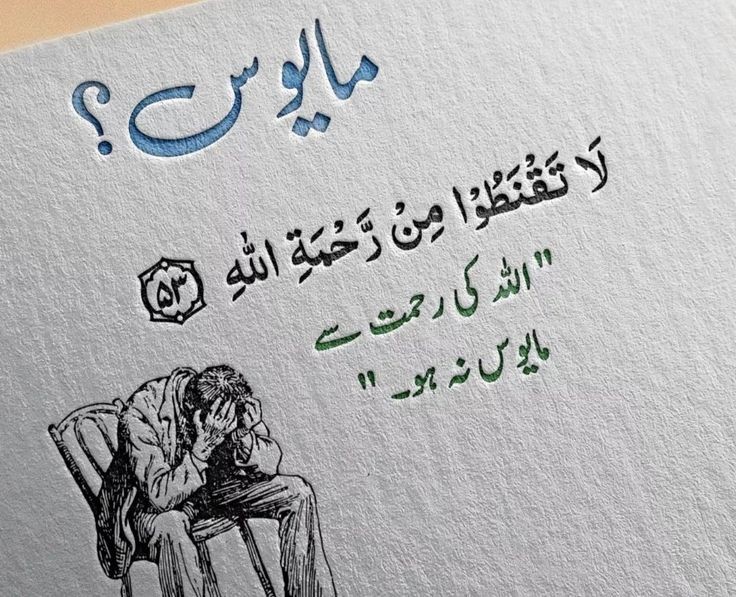 مایوس؟
لَا تَقْنَطُوْا مِنْ رَّحْمَةِ اللّٰهِ ۝۵۳
"اللہ کی رحمت سے
مایوس نہ ہو۔"